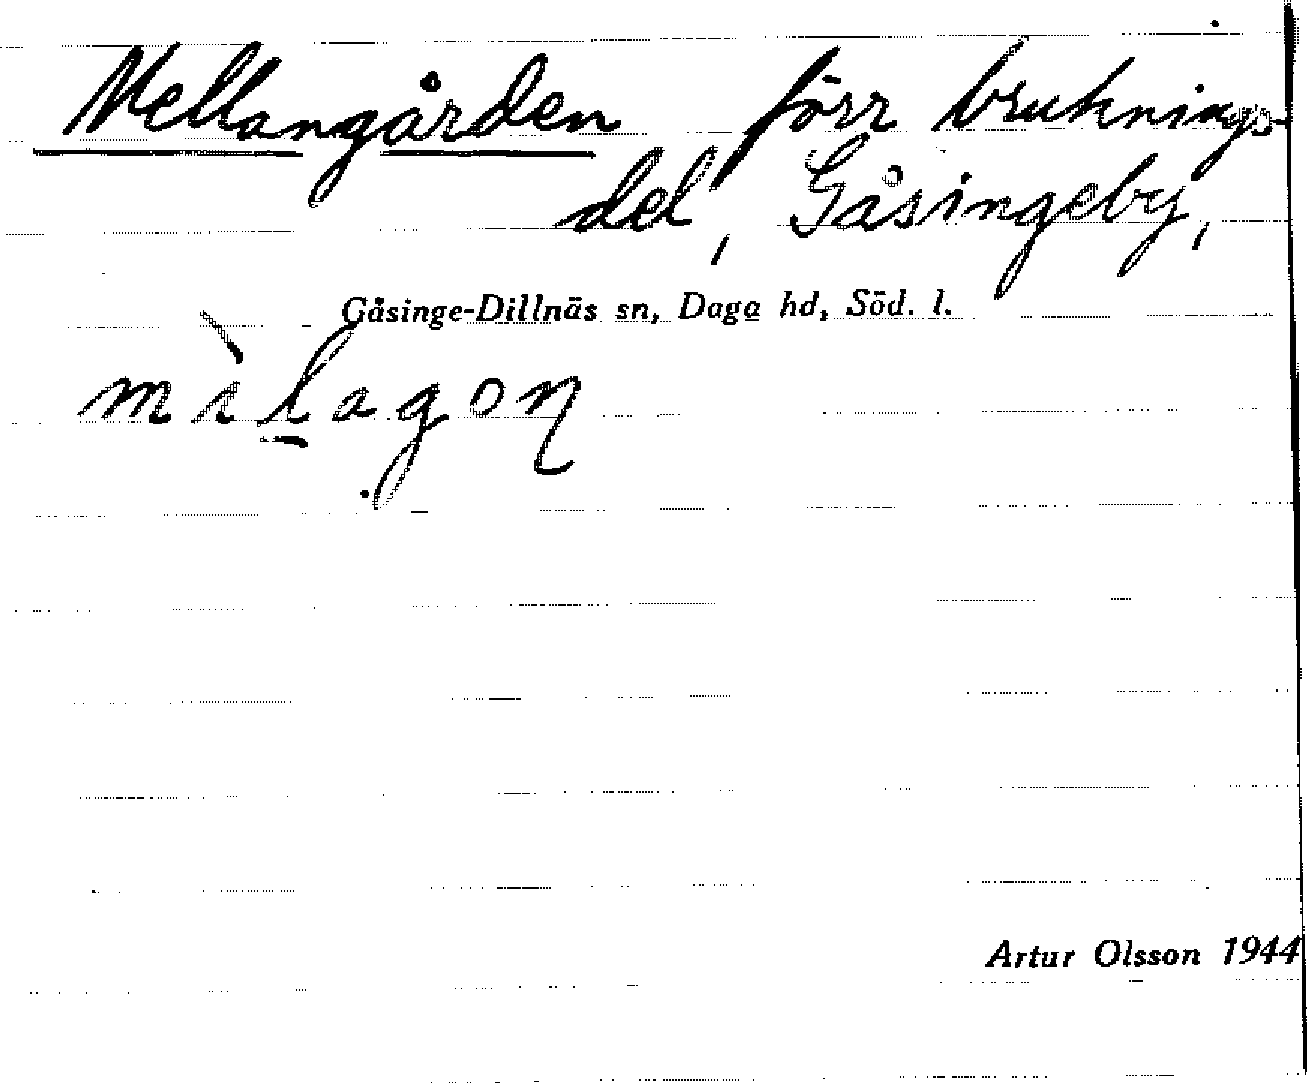 Mellangården förr bruknings-
del, Gåsingeby,
Gåsinge-Dillnäs sn, Daga hd, Söd. l.
Artur Olsson 1944